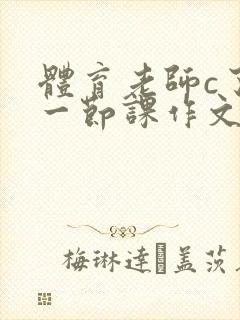 體育老師c
一節課作文
梅琳達 蓋茨